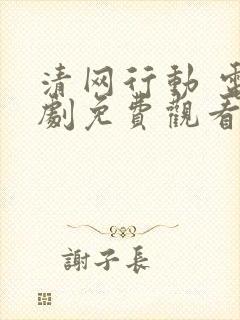 清网行動 電
劇免費觀看
謝子長